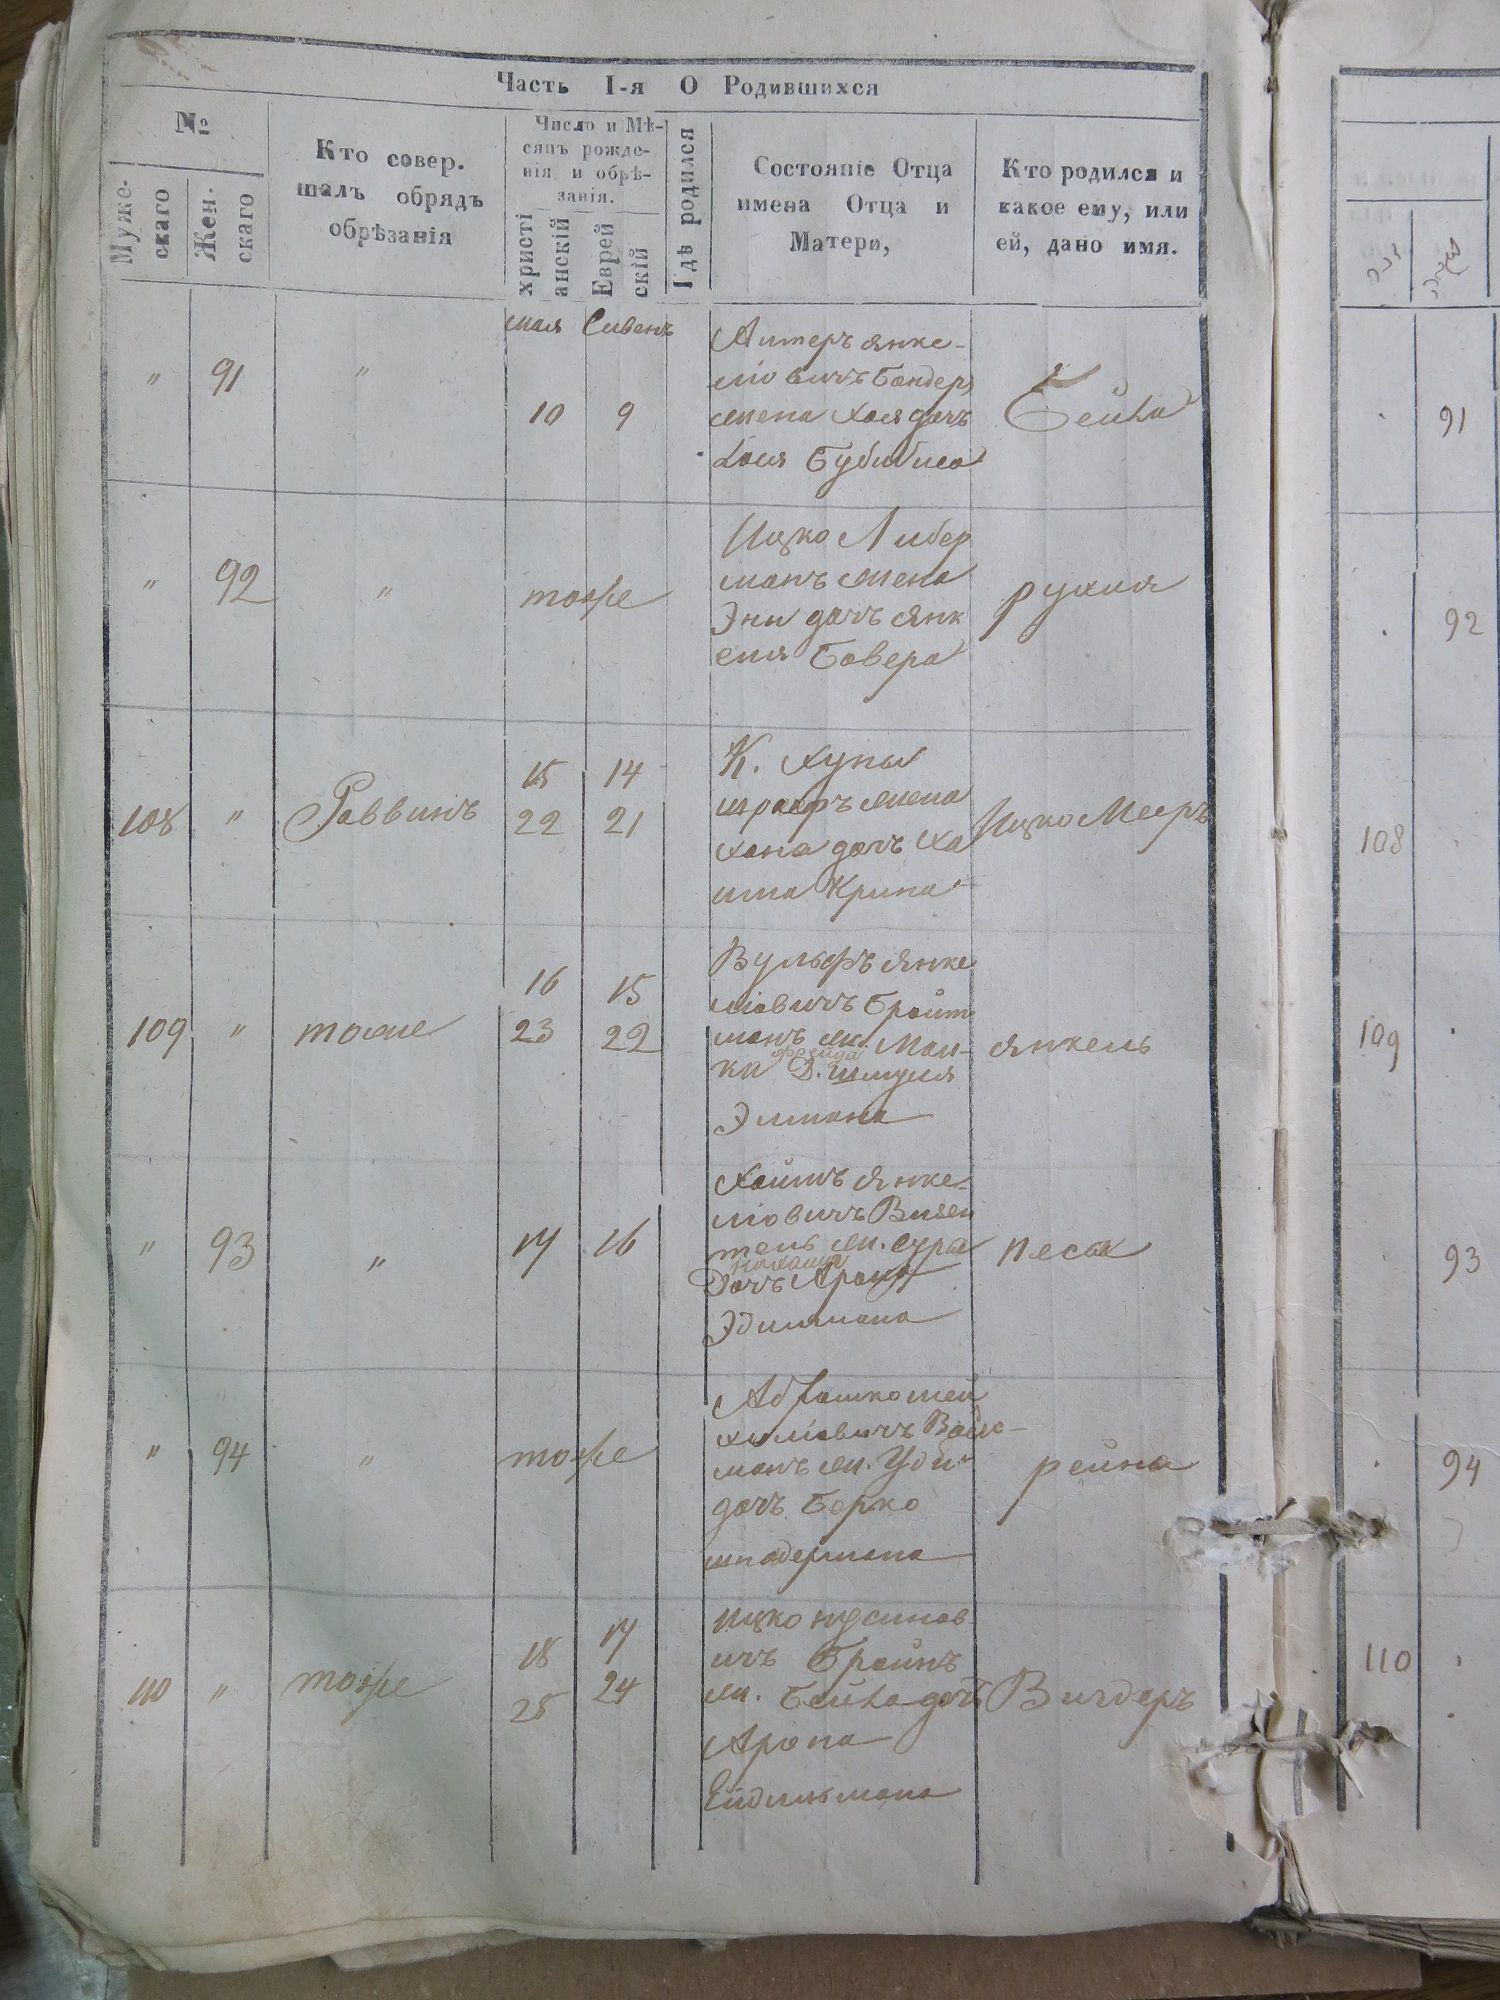 Часть I-я О Родившихся
№
Муже-
скаго
Жен.
скаго
Кто совер.
шалъ обрядъ
обрѣзанія
Число и Мѣ-
сяцъ рожде-
нія и обрѣ-
занія.
христі
анскій
Еврей
скій
Гдѣ родился
Состояніе Отца
имена Отца и
Матери,
Кто родился и
какое ему, или
ей, дано имя.
мая Сивенъ
" 91 " 10 9
Алтеръ Янке-
ліовичъ Бондеръ
жена Хая дочь
Бейла
" 92 " тоже
Ицко Либер
манъ жена
Эни дочь Янк
еля Бовера
рухля
108 " Раввинъ
15 14
22 21
К. Хуны
шрафъ жена
хана дочь Ха
има Крипа
Ицко Мееръ
109 " тоже
16 15
23 22
Вульфъ Янке
ліовичъ Бройт
манъ ж. Мал-
ки Д. Шмуля
фрейда
Элмана
Янкель
" 93 " 17 16
Хаимъ Янке-
ліовичъ Визен
тель ж. сура
Дочь Арона
Эдилмана
песа
" 94 " тоже
Абрашко мей
хиліовичъ Вайс-
манъ ж. Уди
дочь Берко
шпадермана
рейна
110 " тоже
18 17
25 24
Ицко нусинов
ичъ Бройнъ
ж. Бейла дочь
Арона
Ейдильмана
Вигдеръ
91
92
108
109
93
94
110